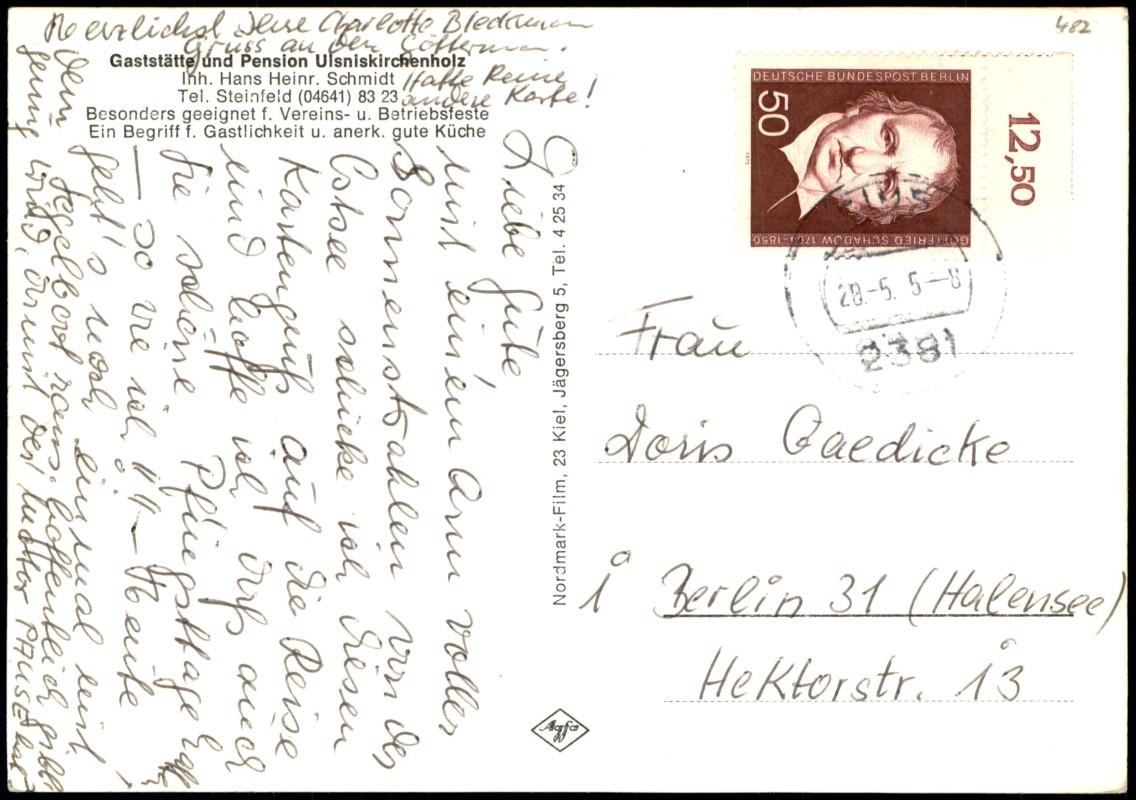 Herzlichst Ihre Charlotte Bleckmann
Gruss an den Götterman.
Hatte keine
andere Karte!
482
Gaststätte und Pension Ulsniskirchenholz
Inh. Hans Heinr. Schmidt
Tel. Steinfeld (04641) 83 23
Besonders geeignet f. Vereins- u. Betriebsfeste
Ein Begriff f. Gastlichkeit u. anerk. gute Küche
Liebe Gute,
mit einem Arm voller
Sonnenstrahlen von der
Ostsee schicke ich diesen
Kartengruß auf die Reise
und hoffe ich, daß auch
Sie schöne Pfingsttage
— so wie ich !! — Heute
geht's noch einmal mit
Segelboot raus, hoffentlich gibt
Wind, damit der Motor PAUSE hat
Nordmark-Film, 23 Kiel, Jägersberg 5, Tel. 4 25 34
Agfa
DEUTSCHE BUNDESPOST BERLIN
50
GOTTFRIED SCHADOW 1764-1850
12,50
28.-5. 5-8
2381
Frau
Doris Gaedicke
1 Berlin 31 (Halensee)
Hektorstr. 13